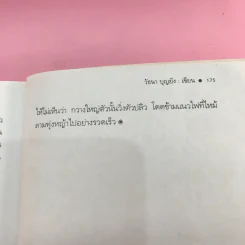 วัธนา บุญยัง : เขียน ● 175
ให้ไม่เห็นว่า กวางใหญ่ตัวนั้นวิ่งตัวปลิว โดดข้ามแนวไฟที่ไหม้
ลามทุ่งหญ้าไปอย่างรวดเร็ว ◉